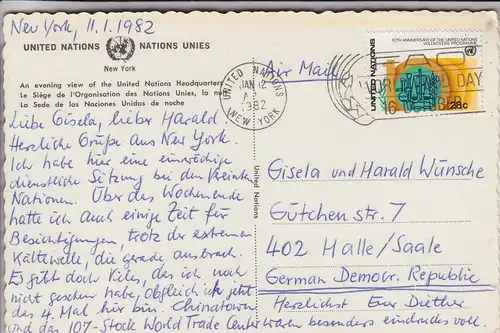 New York, 11.1.1982
UNITED NATIONS NATIONS UNIES
New York
An evening view of the United Nations Headquarters
Le Siège de l'Organisation des Nations Unies, la nuit
La Sede de las Naciones Unidas de noche
Liebe Gisela, lieber Harald
Herzliche Grüße aus New York.
Ich habe hier eine einwöchige
dienstliche Sitzung bei den Vereinten
Nationen. Über das Wochenende
hatte ich auch einige Zeit für
Besichtigungen, trotz der extremen
Kältewelle, die gerade ausbrach.
Es gibt doch Vieles, das ich noch
nicht gesehen habe, obgleich ich jetzt
das 4. Mal hier bin. Chinatown
und das 107-Stock World Trade Center waren besonders eindrucksvoll.
United Nations
Air Mail
UNITED NATIONS
JAN 12
1982
NEW YORK
10TH ANNIVERSARY OF THE UNITED NATIONS
VOLUNTEERS PROGRAMME
UNITED NATIONS
28c
WORLD FOOD DAY
16 OCTOBER
Gisela und Harald Wünsche
Gütchen str. 7
402 Halle/Saale
German Democr. Republic
Herzlichst Euer Diether